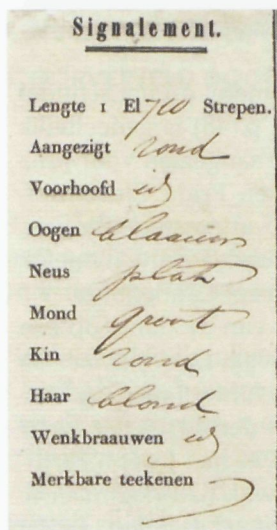 Signalement.
Lengte 1 El 710 Strepen.
Aangezigt rond
Voorhoofd id
Oogen blaauw
Neus plat
Mond groot
Kin rond
Haar blond
Wenkbraauwen id
Merkbare teekenen